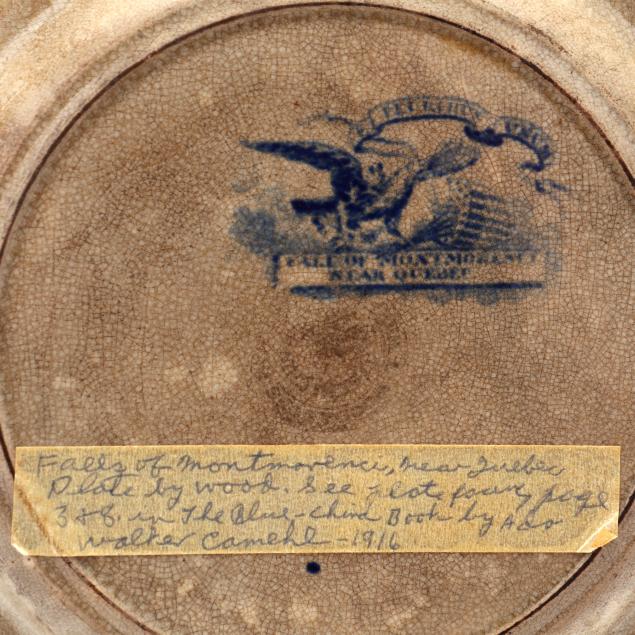 E PLURIBUS UNUM
FALL OF MONTMORENCI
NEAR QUEBEC
Falls of Montmorenci, near Quebec
Plate by Wood. See plate four, page
3 & 8. in The Blue-China Book by Ada
Walker Camehl - 1916